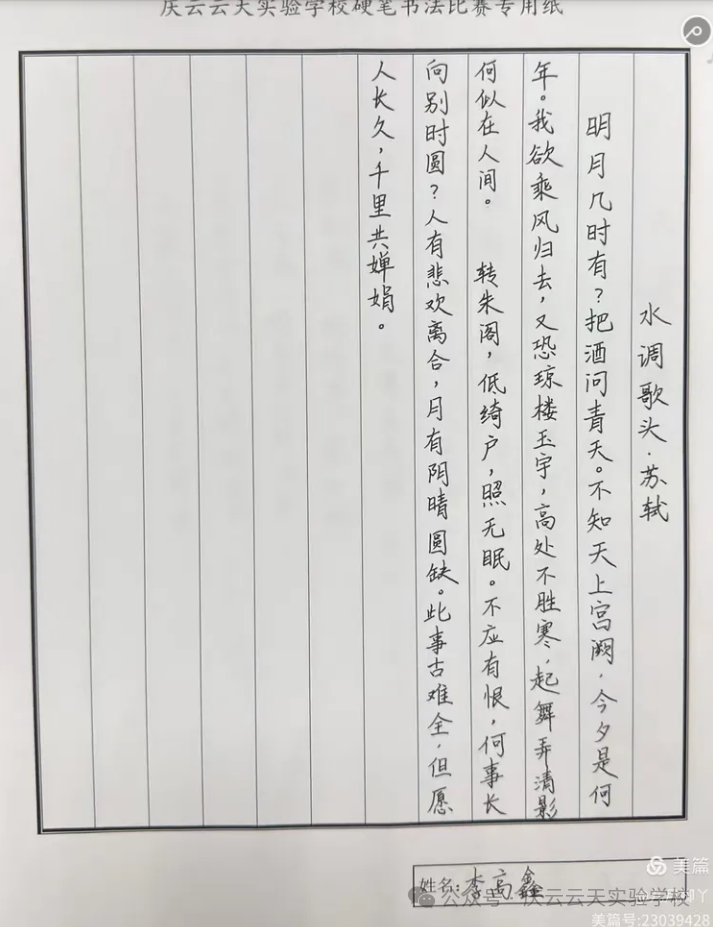 庆云云天实验学校硬笔书法比赛专用纸
水调歌头·苏轼
明月几时有?把酒问青天。不知天上宫阙,今夕是何
年。我欲乘风归去,又恐琼楼玉宇,高处不胜寒,起舞弄清影
何似在人间。 转朱阁,低绮户,照无眠。不应有恨,何事长
向别时圆?人有悲欢离合,月有阴晴圆缺。此事古难全,但愿
人长久,千里共婵娟。
姓名:李高鑫
美篇
公众号·庆云云天实验学校
美篇号:23039428